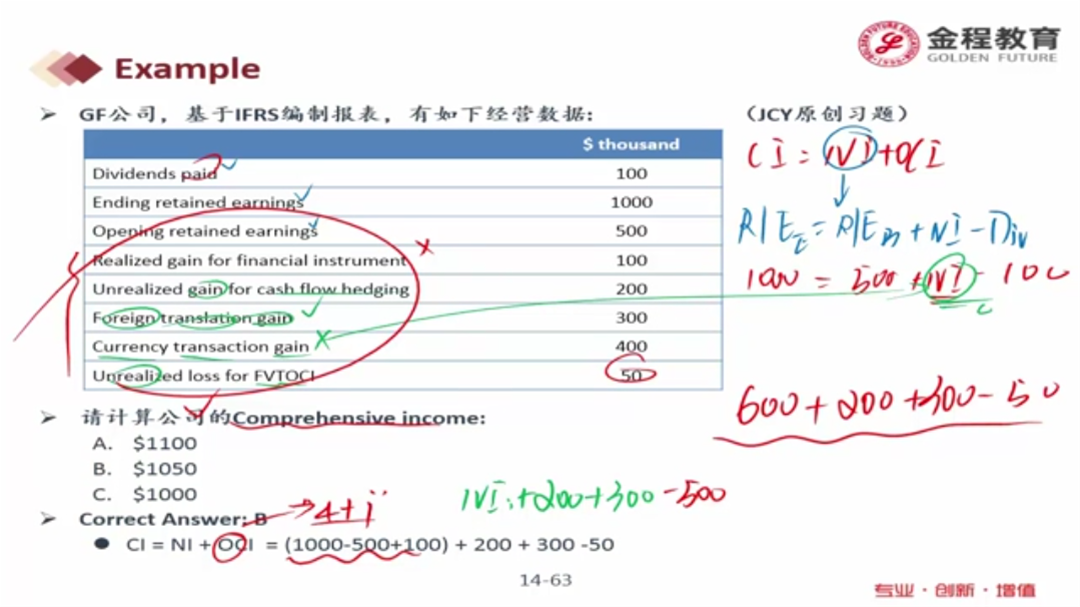 金程教育
GOLDEN FUTURE
Example
GF公司，基于IFRS编制报表，有如下经营数据:
（JCY原创习题）
$ thousand
Dividends paid 100
Ending retained earnings 1000
Opening retained earnings 500
Realized gain for financial instrument 100
Unrealized gain for cash flow hedging 200
Foreign translation gain 300
Currency transaction gain 400
Unrealized loss for FVTOCI 50
CI = NI + OCI
R/E_E = R/E_B + NI - Div
1000 = 500 + NI - 100
600 + 200 + 300 - 50
请计算公司的Comprehensive income:
A. $1100
B. $1050
C. $1000
NI + 200 + 300 - 500
Correct Answer: B
4+i
CI = NI + OCI = (1000-500+100) + 200 + 300 -50
14-63
专业·创新·增值